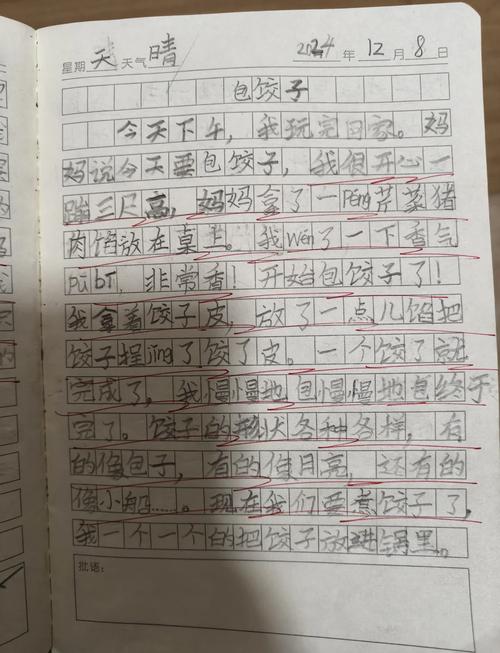 星期 天 天气 晴 2024 年 12 月 8 日
包饺子
今天下午，我玩完回家。妈
妈说今天要包饺子，我很开心一
蹦三尺高，妈妈拿了一Pén芹菜猪
肉馅放在桌上。我Wén了一下香气
pūbí，非常香！开始包饺子了！
我拿着饺子皮，放了一点儿馅把
饺子捏jǐng了饺了皮。一个饺了就
完成了，我慢慢地包慢慢地包终于
完了。饺子的形状各种各样，有
的像包子，有的像月亮，还有的
像小船……。现在我们要煮饺子了，
我一个一个的把饺子放进锅里。
批语：